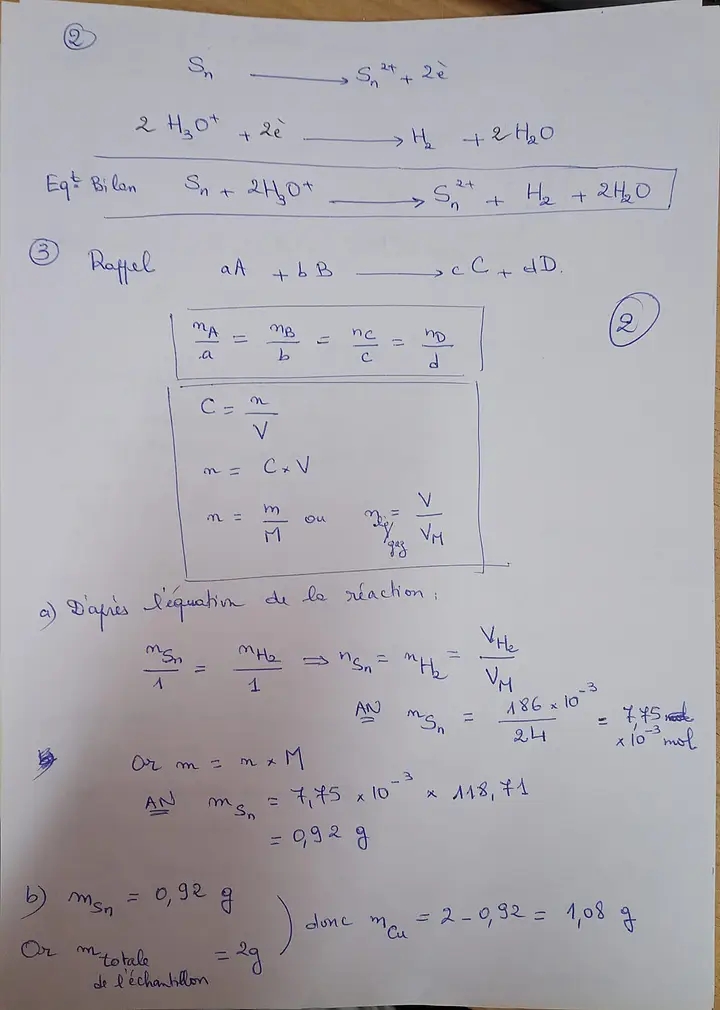 ②
Sn ⟶ Sn²⁺ + 2è
2 H₃O⁺ + 2è ⟶ H₂ + 2H₂O
Eqᵗ Bilan Sn + 2H₃O⁺ ⟶ Sn²⁺ + H₂ + 2H₂O
③ Rappel aA + bB ⟶ cC + dD.
②
n_A/a = n_B/b = n_C/c = n_D/d
C = n/V
n = C × V
n = m/M ou n_gaz = V/V_M
a) D'après l'équation de la réaction :
n_Sn/1 = n_H₂/1 ⟹ n_Sn = n_H₂ = V_H₂/V_M
AN n_Sn = 186 × 10⁻³/24 = 7,75 × 10⁻³ mol
Or m = n × M
AN m_Sn = 7,75 × 10⁻³ × 118,71
= 0,92 g
b) m_Sn = 0,92 g
Or m totale de l'échantillon = 2g
donc m_Cu = 2 - 0,92 = 1,08 g